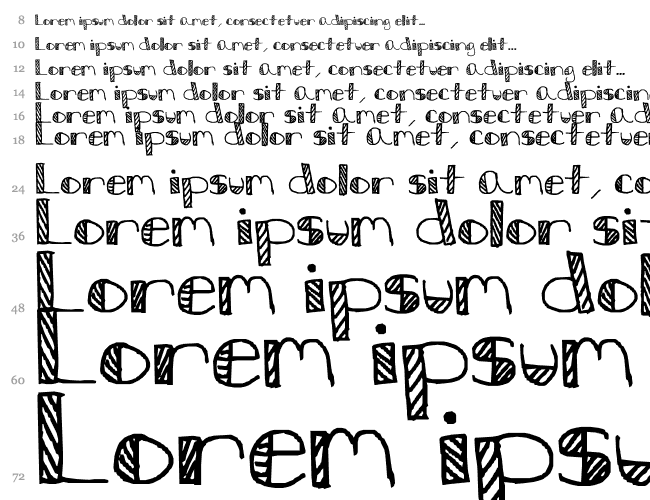 8 Lorem ipsum dolor sit amet, consectetuer adipiscing elit...
10 Lorem ipsum dolor sit amet, consectetuer adipiscing elit...
12 Lorem ipsum dolor sit amet, consectetuer adipiscing elit...
14 Lorem ipsum dolor sit amet, consectetuer adipiscin
16 Lorem ipsum dolor sit amet, consectetuer ad
18 Lorem ipsum dolor sit amet, consectetuer
24 Lorem ipsum dolor sit amet, co
36 Lorem ipsum dolor sit
48 Lorem ipsum dol
60 Lorem ipsum
72 Lorem ipsu